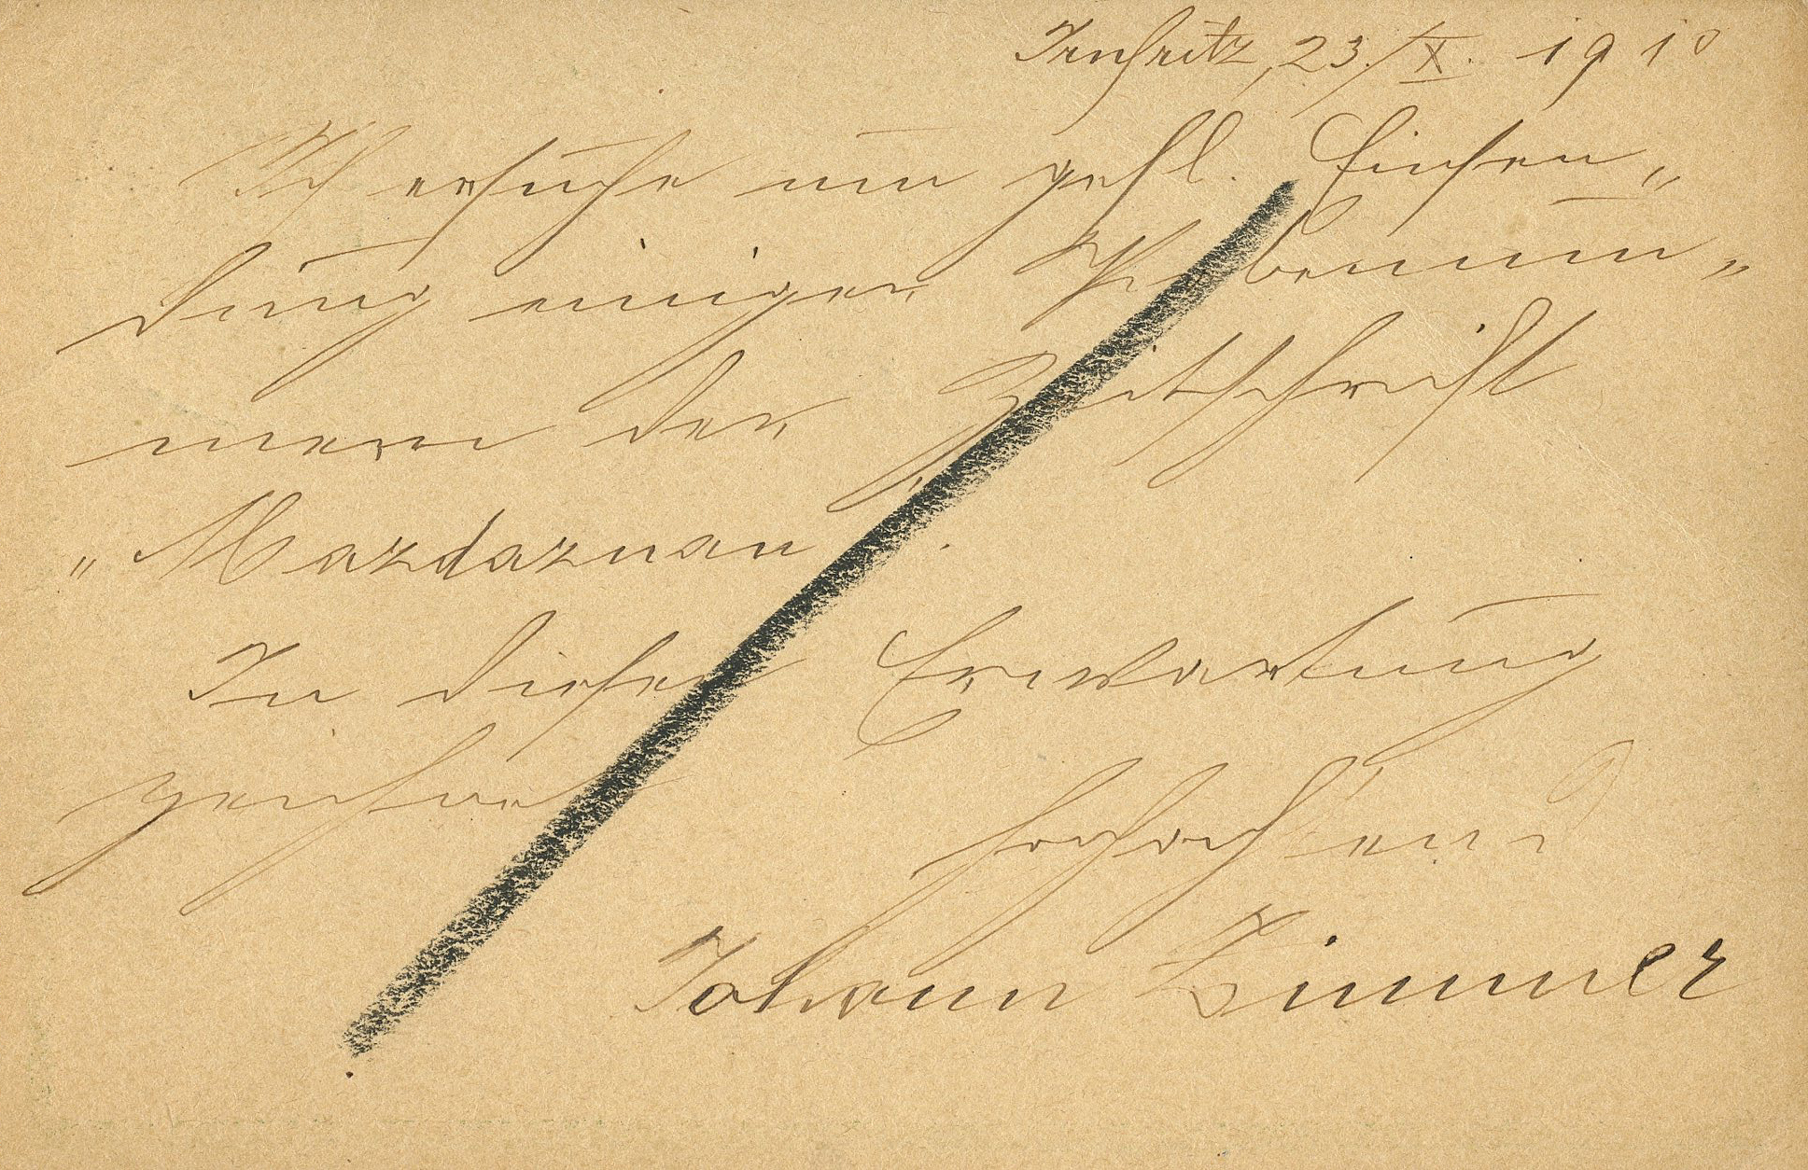 Irnfritz, 23./X. 1910
Ich ersuche um gefl. Einsen„
dung einiger Probenum„
mern der Zeitschrift
„Mazdaznan".
In dieser Erwartung
zeichnet
hochachtend
Johann Zimmer